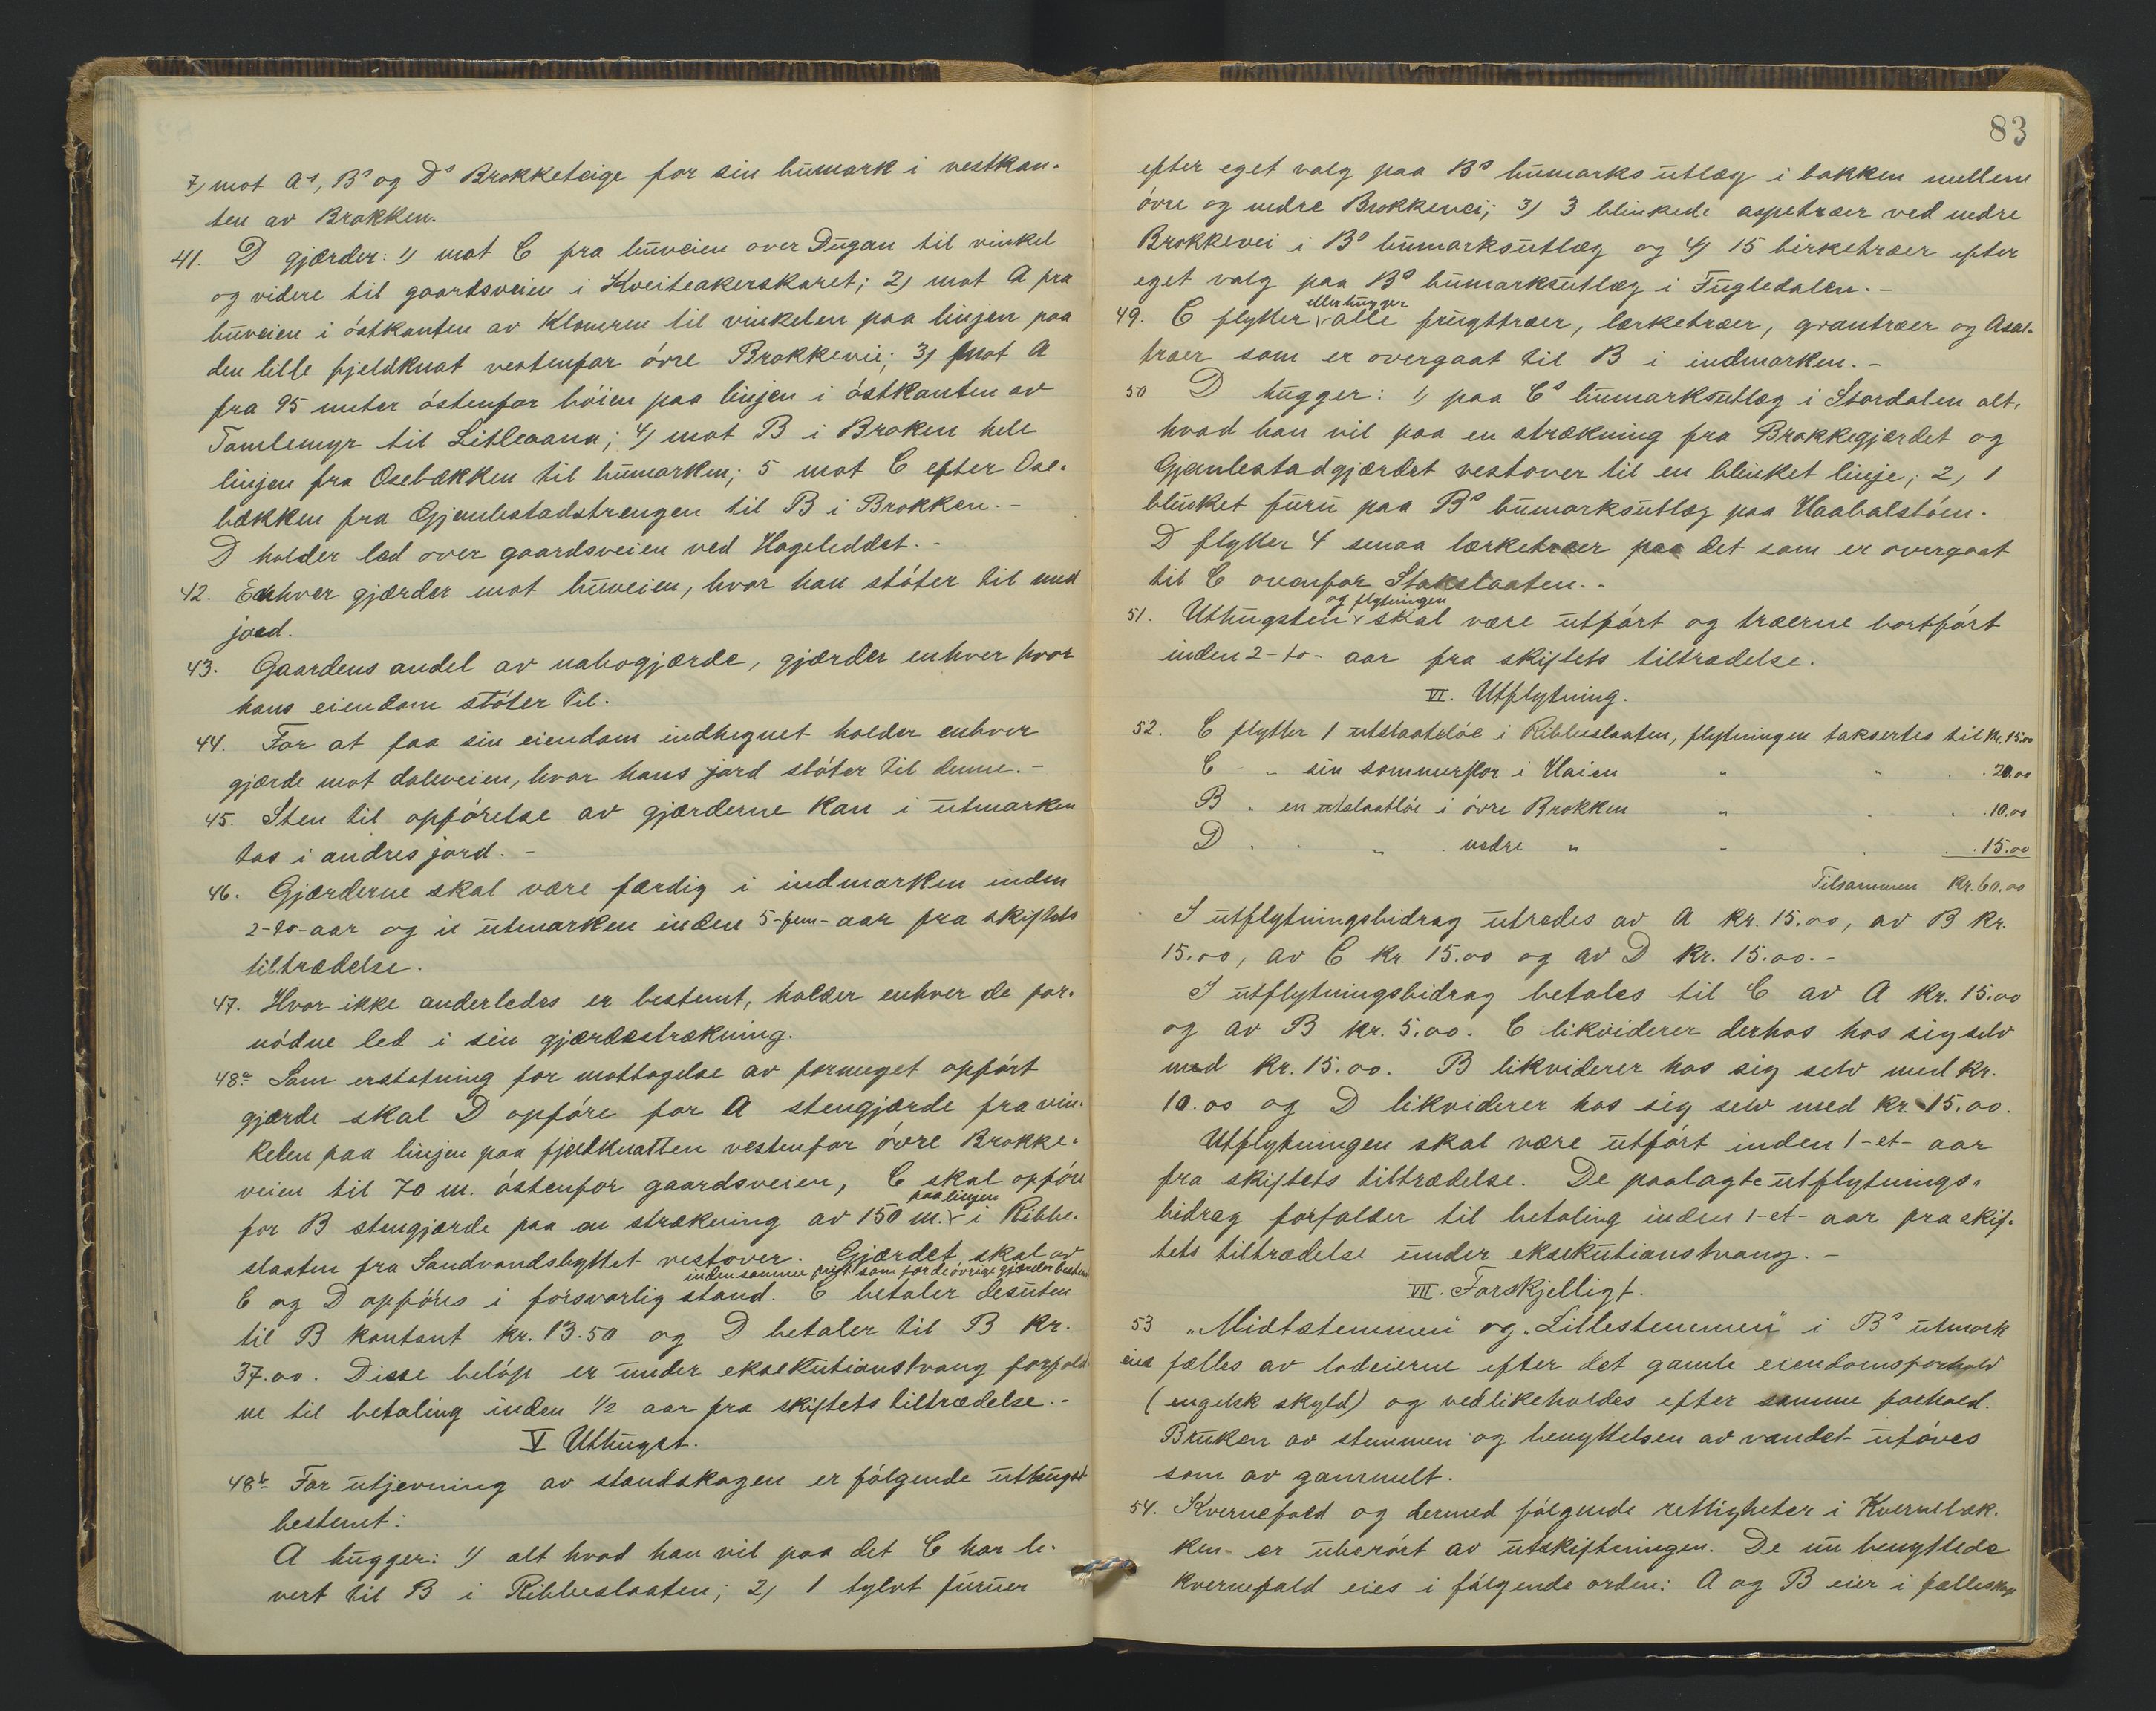 7) mot As, Bs og Ds Brokketeige for sin bumark i vestkan-
ten av Brokken.
41. D gjærder: 1) mot C fra buveien over Dugan til vinkel
og videre til gaardsveien i Kveiteakerskaret; 2) mot A fra
buveien i östkanten av Klomren til vinkelen paa linjen paa
den lille fjeldknat vestenfor övre Brokkevei; 3) mot A
fra 95 meter östenfor böien paa linjen i östkanten av
Tamlemyr til Litleaana; 4) mot B i Broken hele
linjen fra Osebækken til bumarken; 5 mot C efter Ose-
bækken fra Gjenlestadstrengen til B i Brokken. -
D holder led over gaardsveien ved Hageleddet. -
42. Enhver gjærder mot buveien, hvor han stöter til med
jord.
43. Gaardens andel av nabogjærde, gjærder enhver hvor
hans eiendom stöter til.
44. For at faa sin eiendom indhegnet holder enhver
gjærde mot daleveien, hvor hans jord stöter til denne. -
45. Sten til opförelse av gjærderne kan i utmarken
tas i andres jord. -
46. Gjærderne skal være færdig i indmarken inden
2-to-aar og i utmarken inden 5-fem-aar fra skiftets
tiltrædelse.
47. Hvor ikke anderledes er bestemt, holder enhver de for-
nödne led i sin gjærdestrækning.
48a Som erstatning for mottagelse av formeget opfört
gjærde skal D opföre for A stengjærde fra vin-
kelen paa linjen paa fjeldknatten vestenfor övre Brokke-
veien til 70 m. östenfor gaardsveien, C skal opföre
paa linjen
for B stengjærde paa en strækning av 150 m. i Ribbe-
slaaten fra Sandvandsbyttet vestover. Gjærdet skal av
inden samme frist som for de övrige gjærder bestemt
C og D opföres i forsvarlig stand. C betaler desuten
til B kontant kr. 13.50 og D betaler til B kr.
37.00. Disse belöp er under eksekutionstvang forfald-
ne til betaling inden 1/2 aar fra skiftets tiltrædelse. -
V Uthugst.
48b For utjevning av standskogen er fölgende uthugst
bestemt:
A hugger: 1) alt hvad han vil paa det C har le-
vert til B i Ribbeslaaten; 2) 1 tylvt furuer
83
efter eget valg paa Bs bumarksutlæg i bakken mellem
övre og nedre Brokkevei; 3) 3 blinkede aspetræer ved nedre
Brokkevei i Bs bumarksutlæg og 4) 15 birketræer efter
eget valg paa Bs bumarksutlæg i Fugledalen. -
eller hugger
49. C flytter alle frugttræer, lærketræer, grantræer og Asal-
træer som er overgaat til B i indmarken. -
50 D hugger: 1) paa Cs bumarksutlæg i Stordalen alt,
hvad han vil paa en strækning fra Brokkegjærdet og
Gjenlestadgjærdet vestover til en blinket linje; 2) 1
blinket furu paa Bs bumarksutlæg paa Haabalstöen.
D flytter 4 smaa lærketræer paa det som er overgaat
til C ovenfor Stakslaaten. -
og flytningen
51. Uthugsten skal være utfört og træerne bortfört
inden 2-to- aar fra skiftets tiltrædelse.
VI. Utflytning.
52. C flytter 1 utslaatslöe i Ribbeslaaten, flytningen taksertes til kr. 15.00
C " sin sommerflor i Haien " " . 20.00
B " en utslaatlöe i övre Brokken " . . . 10.00
D . . " . nedre " " . . . 15.00
Tilsammen kr. 60.00
I utflytningsbidrag utredes av A kr. 15.00, av B kr.
15.00, av C kr. 15.00 og av D kr. 15.00. -
I utflytningsbidrag betales til C av A kr. 15.00
og av B kr. 5.00. C likviderer derhos hos sig selv
med kr. 15.00. B likviderer hos sig selv med kr.
10.00 og D likviderer hos sig selv med kr. 15.00.
Utflytningen skal være utfört inden 1-et- aar
fra skiftets tiltrædelse. De paalagte utflytnings-
bidrag forfalder til betaling inden 1-et- aar fra skif-
tets tiltrædelse under eksekutionstvang. -
VII. Forskjelligt.
53 "Midtstemmen" og "Litlestemmen" i Bs utmark
eies fælles av lodeierne efter det gamle eiendomsforhold
(engelsk skyld) og vedlikeholdes efter samme forhold.
Bruken av stemmen og benyttelsen av vandet utöves
som av gammelt.
54. Kvernefald og dermed fölgende rettigheter i Kvernebæk-
ken er uberört av utskiftningen. De nu benyttede
kvernefald eies i fölgende orden: A og B eier i fælleskap